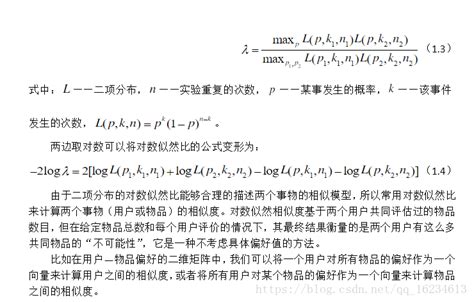 λ = max_p L(p,k₁,n₁)L(p,k₂,n₂) / max_{p₁,p₂} L(p₁,k₁,n₁)L(p₂,k₂,n₂) (1.3)
式中：L——二项分布，n——实验重复的次数，p——某事发生的概率，k——该事件
发生的次数，L(p,k,n) = p^k(1−p)^{n−k}。
两边取对数可以将对数似然比的公式变形为：
−2logλ = 2[logL(p₁,k₁,n₁)+logL(p₂,k₂,n₂)−logL(p,k₁,n₁)−logL(p,k₂,n₂)] (1.4)
由于二项分布的对数似然比能够合理的描述两个事物的相似模型，所以常用对数似然比
来计算两个事物（用户或物品）的相似度。对数似然相似度基于两个用户共同评估过的物品
数目，但在给定物品总数和每个用户评价的情况下，其最终结果衡量的是两个用户有这么多
共同物品的“不可能性”，它是一种不考虑具体偏好值的方法。
比如在用户—物品偏好的二维矩阵中，我们可以将一个用户对所有物品的偏好作为一个
向量来计算用户之间的相似度，或者将所有用户对某个物品的偏好作为一个向量来计算物品
之间的相似度。
https://blog.csdn.net/qq_16234613